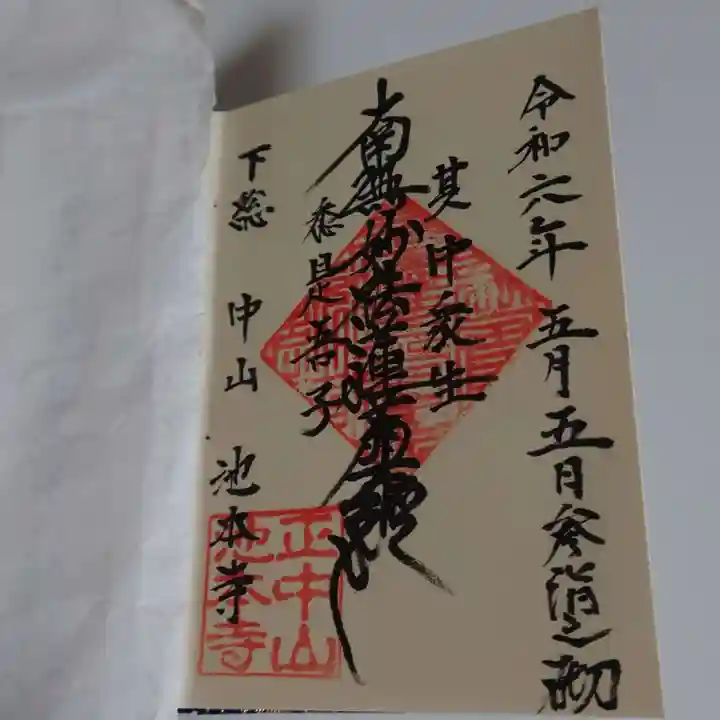 令和六年五月五日参詣之砌
其中衆生
南無妙法蓮華経
悉是吾子
下総 中山 池本寺
正中山
池本寺